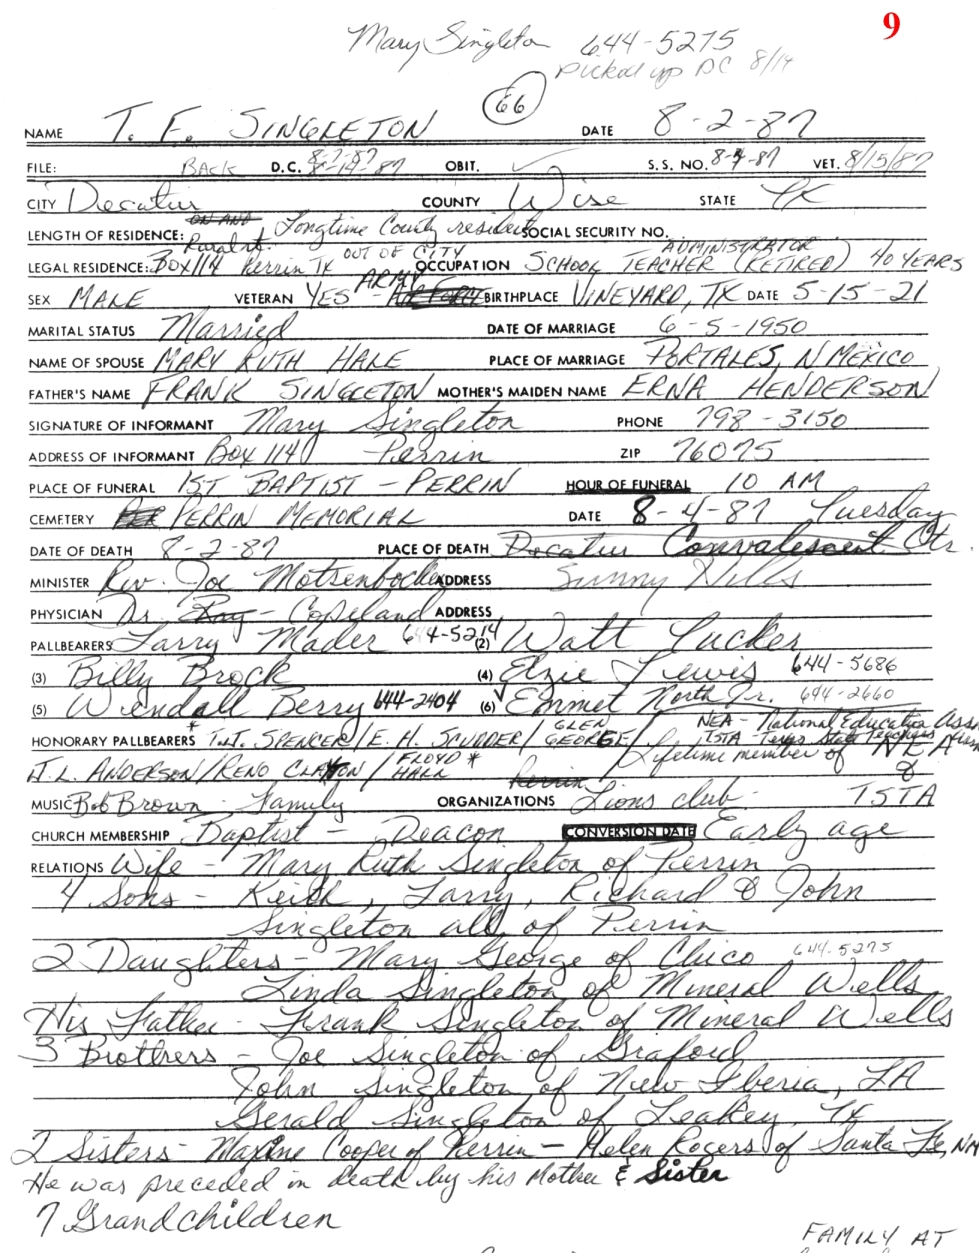 9
Mary Singleton 644-5275
Picked up DC 8/14
66
NAME T. F. SINGLETON DATE 8-2-87
FILE: BACK D.C. 8-7-87 8-14-87 OBIT. ✓ S.S. NO. 8-4-87 VET. 8/15/87
CITY Decatur COUNTY Wise STATE TX
LENGTH OF RESIDENCE: Longtime County resident SOCIAL SECURITY NO.
Rural rt. OUT OF CITY ADMINISTRATOR
LEGAL RESIDENCE: Box 114 Perrin TX OCCUPATION SCHOOL TEACHER (RETIRED) 40 YEARS
SEX MALE VETERAN YES - ARMY BIRTHPLACE VINEYARD, TX DATE 5-15-21
MARITAL STATUS Married DATE OF MARRIAGE 6-5-1950
NAME OF SPOUSE MARY RUTH HALE PLACE OF MARRIAGE PORTALES, N MEXICO
FATHER'S NAME FRANK SINGLETON MOTHER'S MAIDEN NAME ERNA HENDERSON
SIGNATURE OF INFORMANT Mary Singleton PHONE 798-3150
ADDRESS OF INFORMANT Box 114 Perrin ZIP 76075
PLACE OF FUNERAL 1ST BAPTIST - PERRIN HOUR OF FUNERAL 10 AM
CEMETERY PERRIN MEMORIAL DATE 8-4-87 Tuesday
DATE OF DEATH 8-2-87 PLACE OF DEATH Decatur Convalescent Ctr.
MINISTER Rev. Joe Motsenbocker ADDRESS Sunny Hills
PHYSICIAN Dr. Ray - Copeland ADDRESS
PALLBEARERS Larry Mader 644-5214 (2) Walt Tucker
(3) Billy Brock (4) Elzie Lewis 644-5686
(5) Wendall Berry 644-2404 (6) ✓ Emmet North Jr. 644-2660
HONORARY PALLBEARERS * T.J. SPENCER / E. H. SCUDDER / GLEN GEORGE / NEA - National Education Assn
TSTA - Texas State Teachers Assn
J. L. ANDERSON / RENO CLAYTON / FLOYD HALL * Lifetime member of NEA &
MUSIC Bob Brown - Family ORGANIZATIONS Lions club - TSTA
CHURCH MEMBERSHIP Baptist - Deacon CONVERSION DATE Early age
RELATIONS Wife - Mary Ruth Singleton of Perrin
4 Sons - Keith, Larry, Richard & John
Singleton all of Perrin
2 Daughters - Mary George of Chico 644-5275
Linda Singleton of Mineral Wells
His Father - Frank Singleton of Mineral Wells
3 Brothers - Joe Singleton of Graford
John Singleton of New Iberia, LA
Gerald Singleton of Leakey, TX
2 Sisters - Maxine Cooper of Perrin - Helen Rogers of Santa Fe, NM
He was preceded in death by his Mother & Sister
7 Grandchildren
FAMILY AT